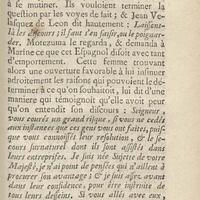 à se mutiner. Ils vouloient terminer la
question par les voyes de fait ; & Jean Ve-
lasquez de Leon dit hautement : Laissons-
là les discours ; il faut s'en saisir, ou le poignar-
der. Motezuma le regarda, & demanda à
Marine ce que cet Espagnol disoit avec tant
d'emportement. Cette femme trouvant
alors une ouverture favorable à lui insinuer
adroitement les raisons qui pouvoient le dé-
terminer à ce qu'on souhaitoit, lui dit d'une
maniere qui témoignoit qu'elle avoit peur
qu'on entendît son discours : Seigneur,
vous courés un grand risque, si vous ne cedés
aux instances que ces gens vous ont faites, puis-
que vous connoissés leur resolution, & le se-
cours surnaturel dont ils sont assistés dans
leurs entreprises. Je suis née Sujette de votre
Majesté, je n'ai point de pensées qui n'aillent à
procurer son avantage ; & je suis assez avant
dans leur confidence, pour être instruite de
tous leurs desseins. Si vous allés avec eux,